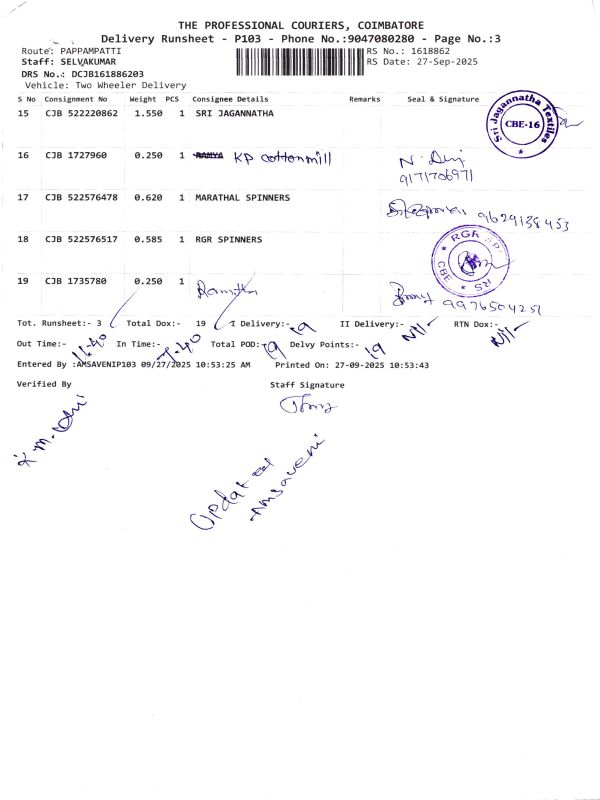 THE PROFESSIONAL COURIERS, COIMBATORE
Delivery Runsheet - P103 - Phone No.:9047080280 - Page No.:3
Route: PAPPAMPATTI RS No.: 1618862
Staff: SELVAKUMAR RS Date: 27-Sep-2025
DRS No.: DCJB161886203
Vehicle: Two Wheeler Delivery
S No Consignment No Weight PCS Consignee Details Remarks Seal & Signature
15 CJB 522220862 1.550 1 SRI JAGANNATHA
Sri Jagannatha Textiles CBE-16
16 CJB 1727960 0.250 1 KP cottonmill
9171706971
17 CJB 522576478 0.620 1 MARATHAL SPINNERS
9629138453
18 CJB 522576517 0.585 1 RGR SPINNERS
RGR CBE
19 CJB 1735780 0.250 1
9976504251
Tot. Runsheet:- 3 Total Dox:- 19 I Delivery:- 19 II Delivery:- Nil RTN Dox:- Nil
Out Time:- 11.40 In Time:- 7.40 Total POD:- 19 Delvy Points:- 19
Entered By :AMSAVENIP103 09/27/2025 10:53:25 AM Printed On: 27-09-2025 10:53:43
Verified By Staff Signature
Updated
Amsaveni